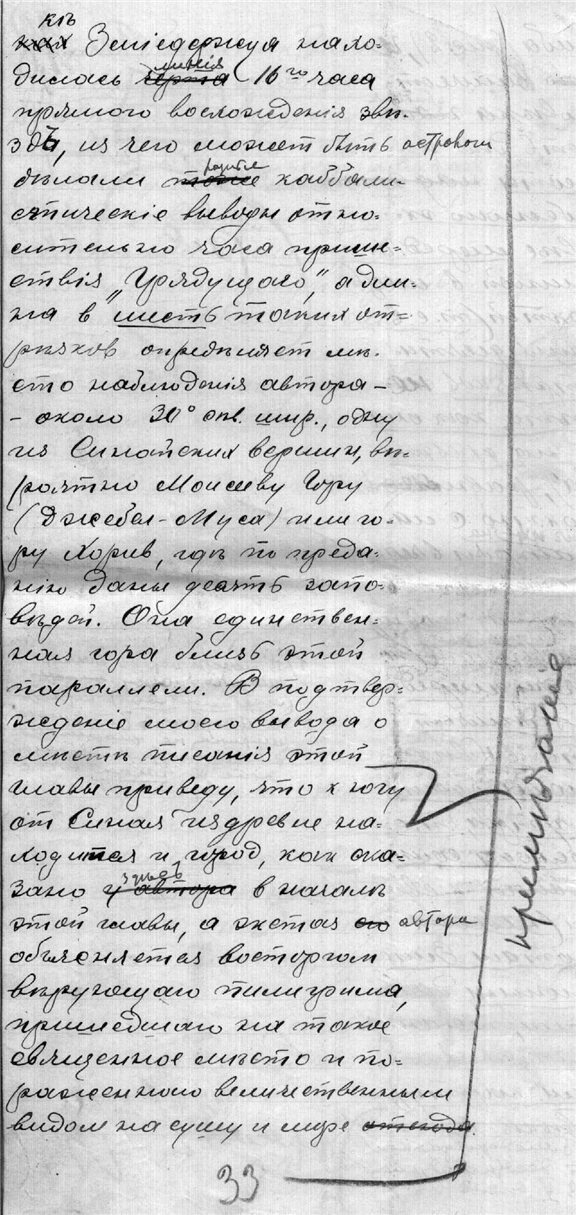 къ
Змiедержуя нахо-
линiя
дилась черта (16го часа
прямого восхожденiя звѣ-
здъ, из чего может быть астрологи
дѣлали каббали-
стическiе выводы отно-
сительно часа прише-
ствiя „Грядущаго“, а дли-
на в "шесть таких от-
рѣзков опредѣляет мѣ-
сто наблюденiя автора —
— около 30° сѣв. шир., одну
из Синайских вершин, вѣ-
роятно Моисееву Гору
(Джебел-Муса) или го-
ру Хорив, гдѣ по преда-
нiю даны десять запо-
вѣдей. Она единствен-
ная гора близь этой
параллели. В подтвер-
жденiе моего вывода о
мѣстѣ писанiя этой
главы приведу, что к югу
от Синая издревле на-
ходится и город, как ска-
здѣсь
зано у автора в началѣ
этой главы, а экстаз его автора
объясняется восторгом
вѣрующаго пилигрима,
пришедшаго на такое
священное мѣсто и по-
раженного величественным
видом на сушу и море отсюда.
примѣчанiе
33